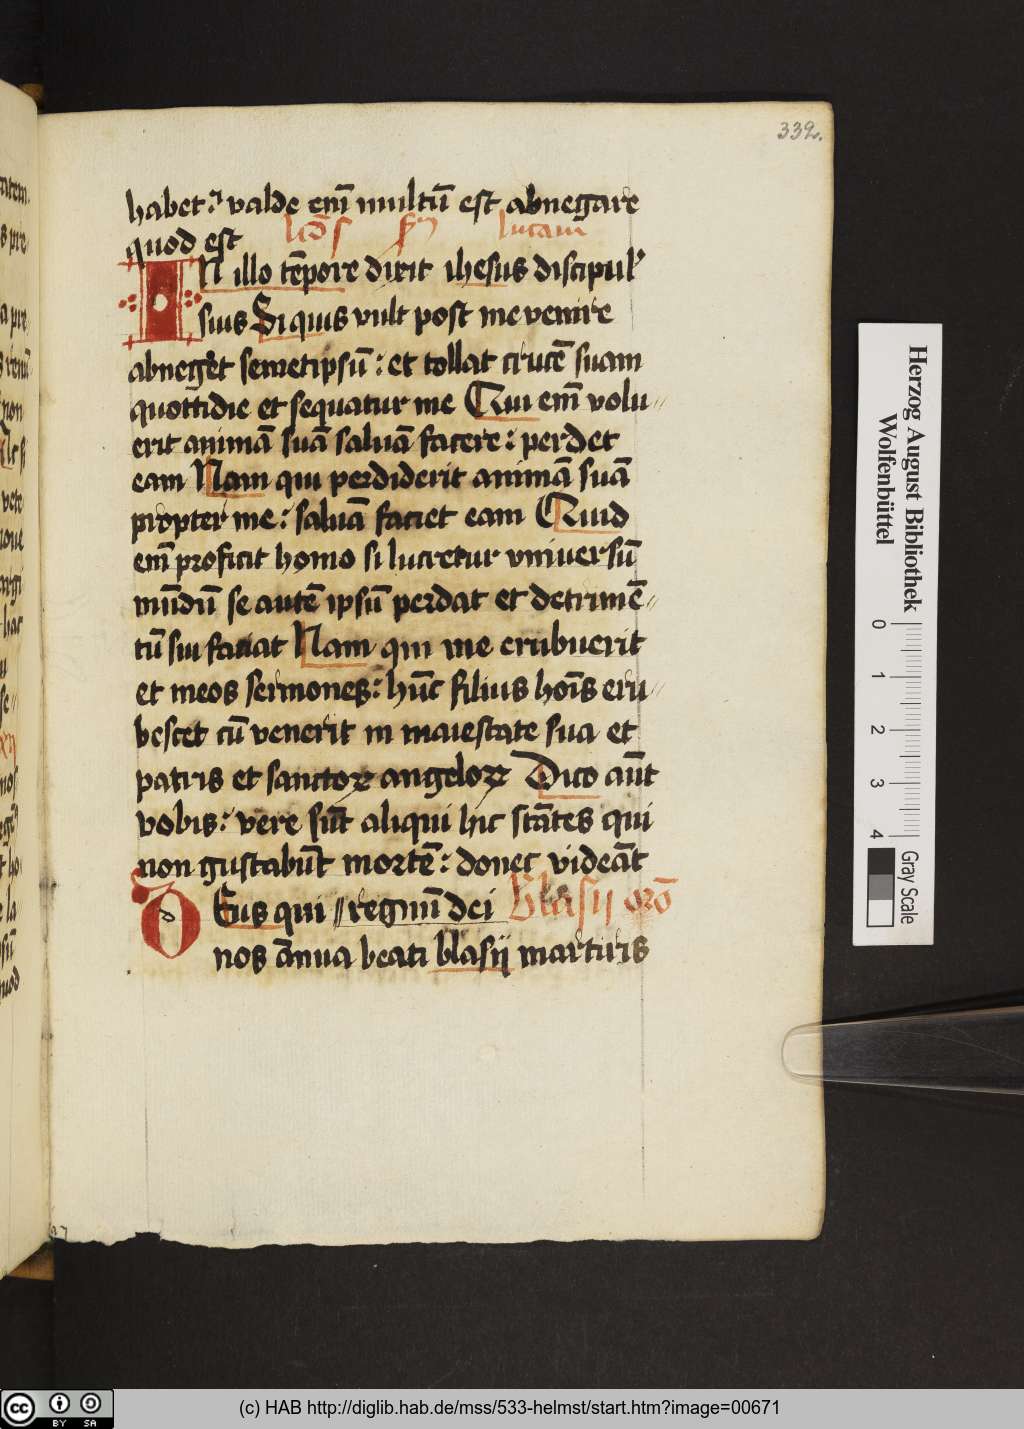 332.
habet? valde em̄ multū est abnegare
quod est lcō s̄ ſm lucam
In illo tēpore dixit ihesus discipul'
suis Si quis vult post me venire
abneget semetipsū : et tollat crucē suam
quottidie et sequatur me Qui em̄ volu〃
erit animā suā saluā facere : perdet
eam Nam qui perdiderit animā suā
propter me : saluā faciet eam Quid
em̄ proficit homo si lucretur vniuersū
mūdū se autē ipsū perdat et detrimē〃
tū sui faciat Nam qui me erubuerit
et meos sermones : hūc filius hoīs eru〃
bescet cū venerit in maiestate sua et
patris et sanctoꝝ angeloꝝ Dico aūt
vobis : vere sūt aliqui hic stātes qui
non gustabūt mortē : donec videāt
Deus qui // regnū dei Blasij orō
nos ānua beati blasij marturis
Herzog August Bibliothek
Wolfenbüttel
0 1 2 3 4
Gray Scale
cc BY SA
(c) HAB http://diglib.hab.de/mss/533-helmst/start.htm?image=00671